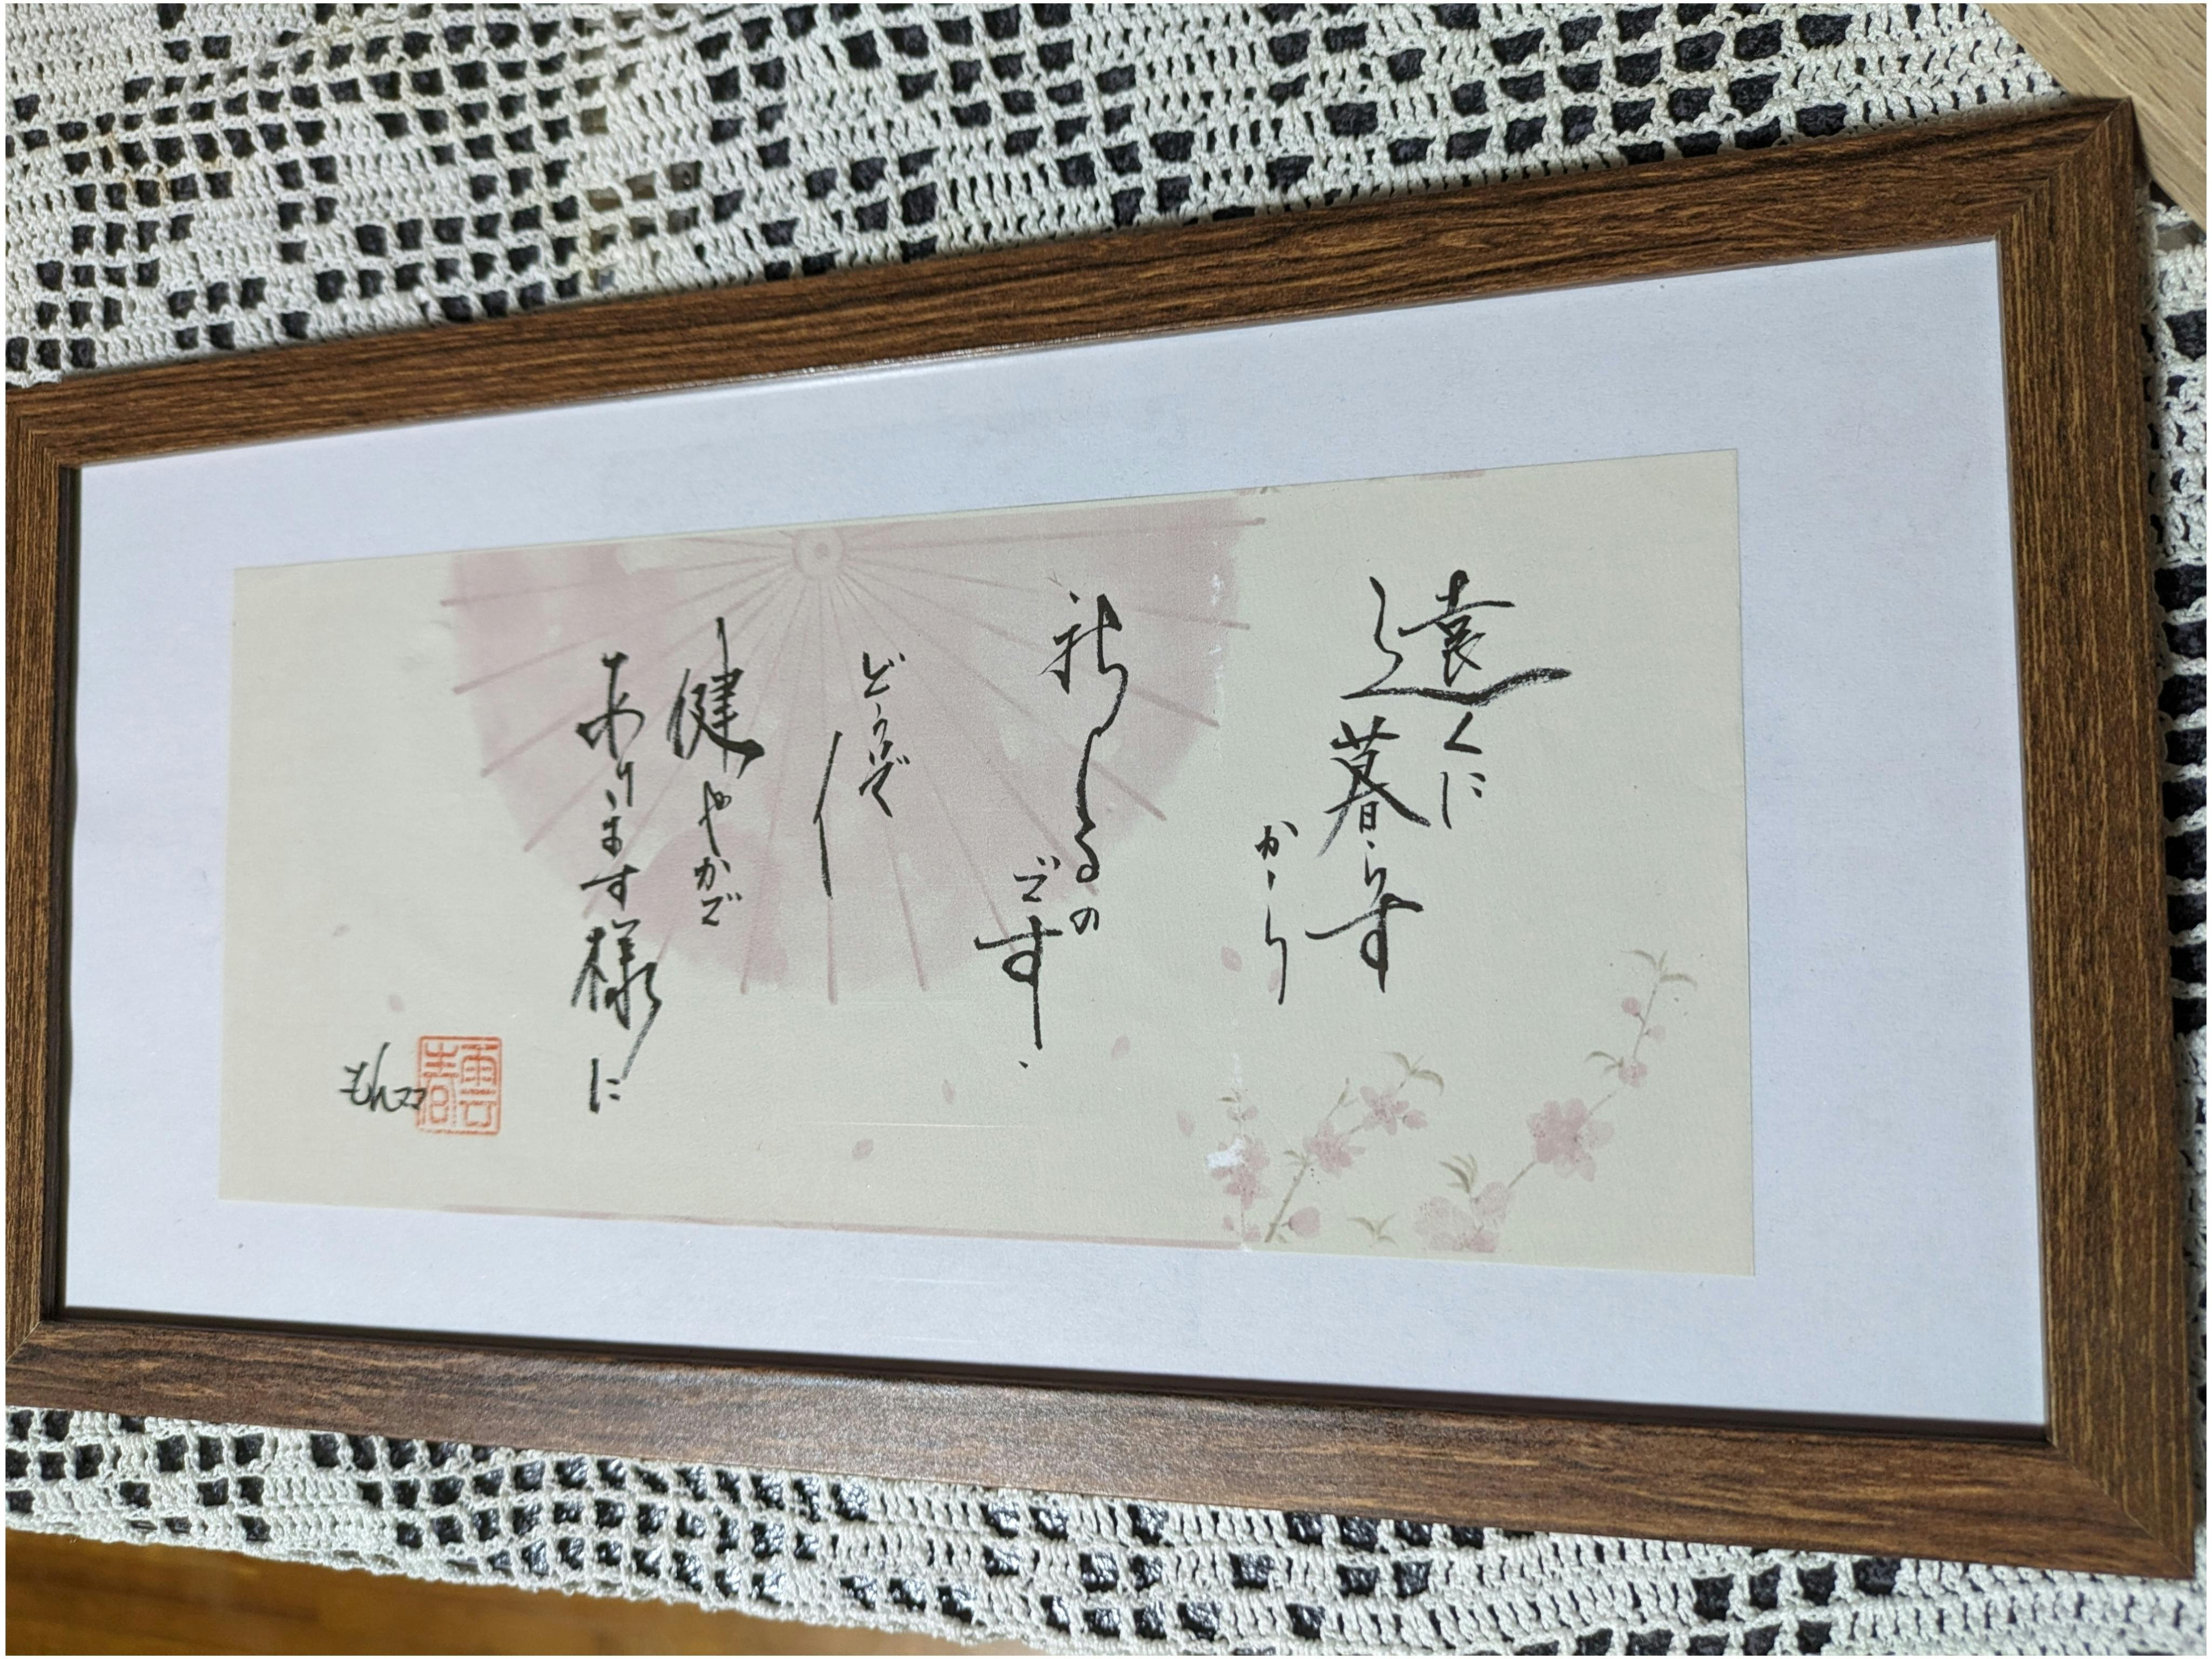 遠くに
暮らす
から
祈るの
です.
どうぞ
健やかで
あります様に